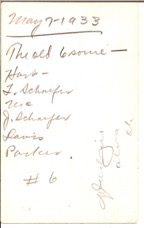 May 7-1933
The old 6 some -
Hart -
F. Schaefer
Me
J. Schaefer
Davis
Parker
#6